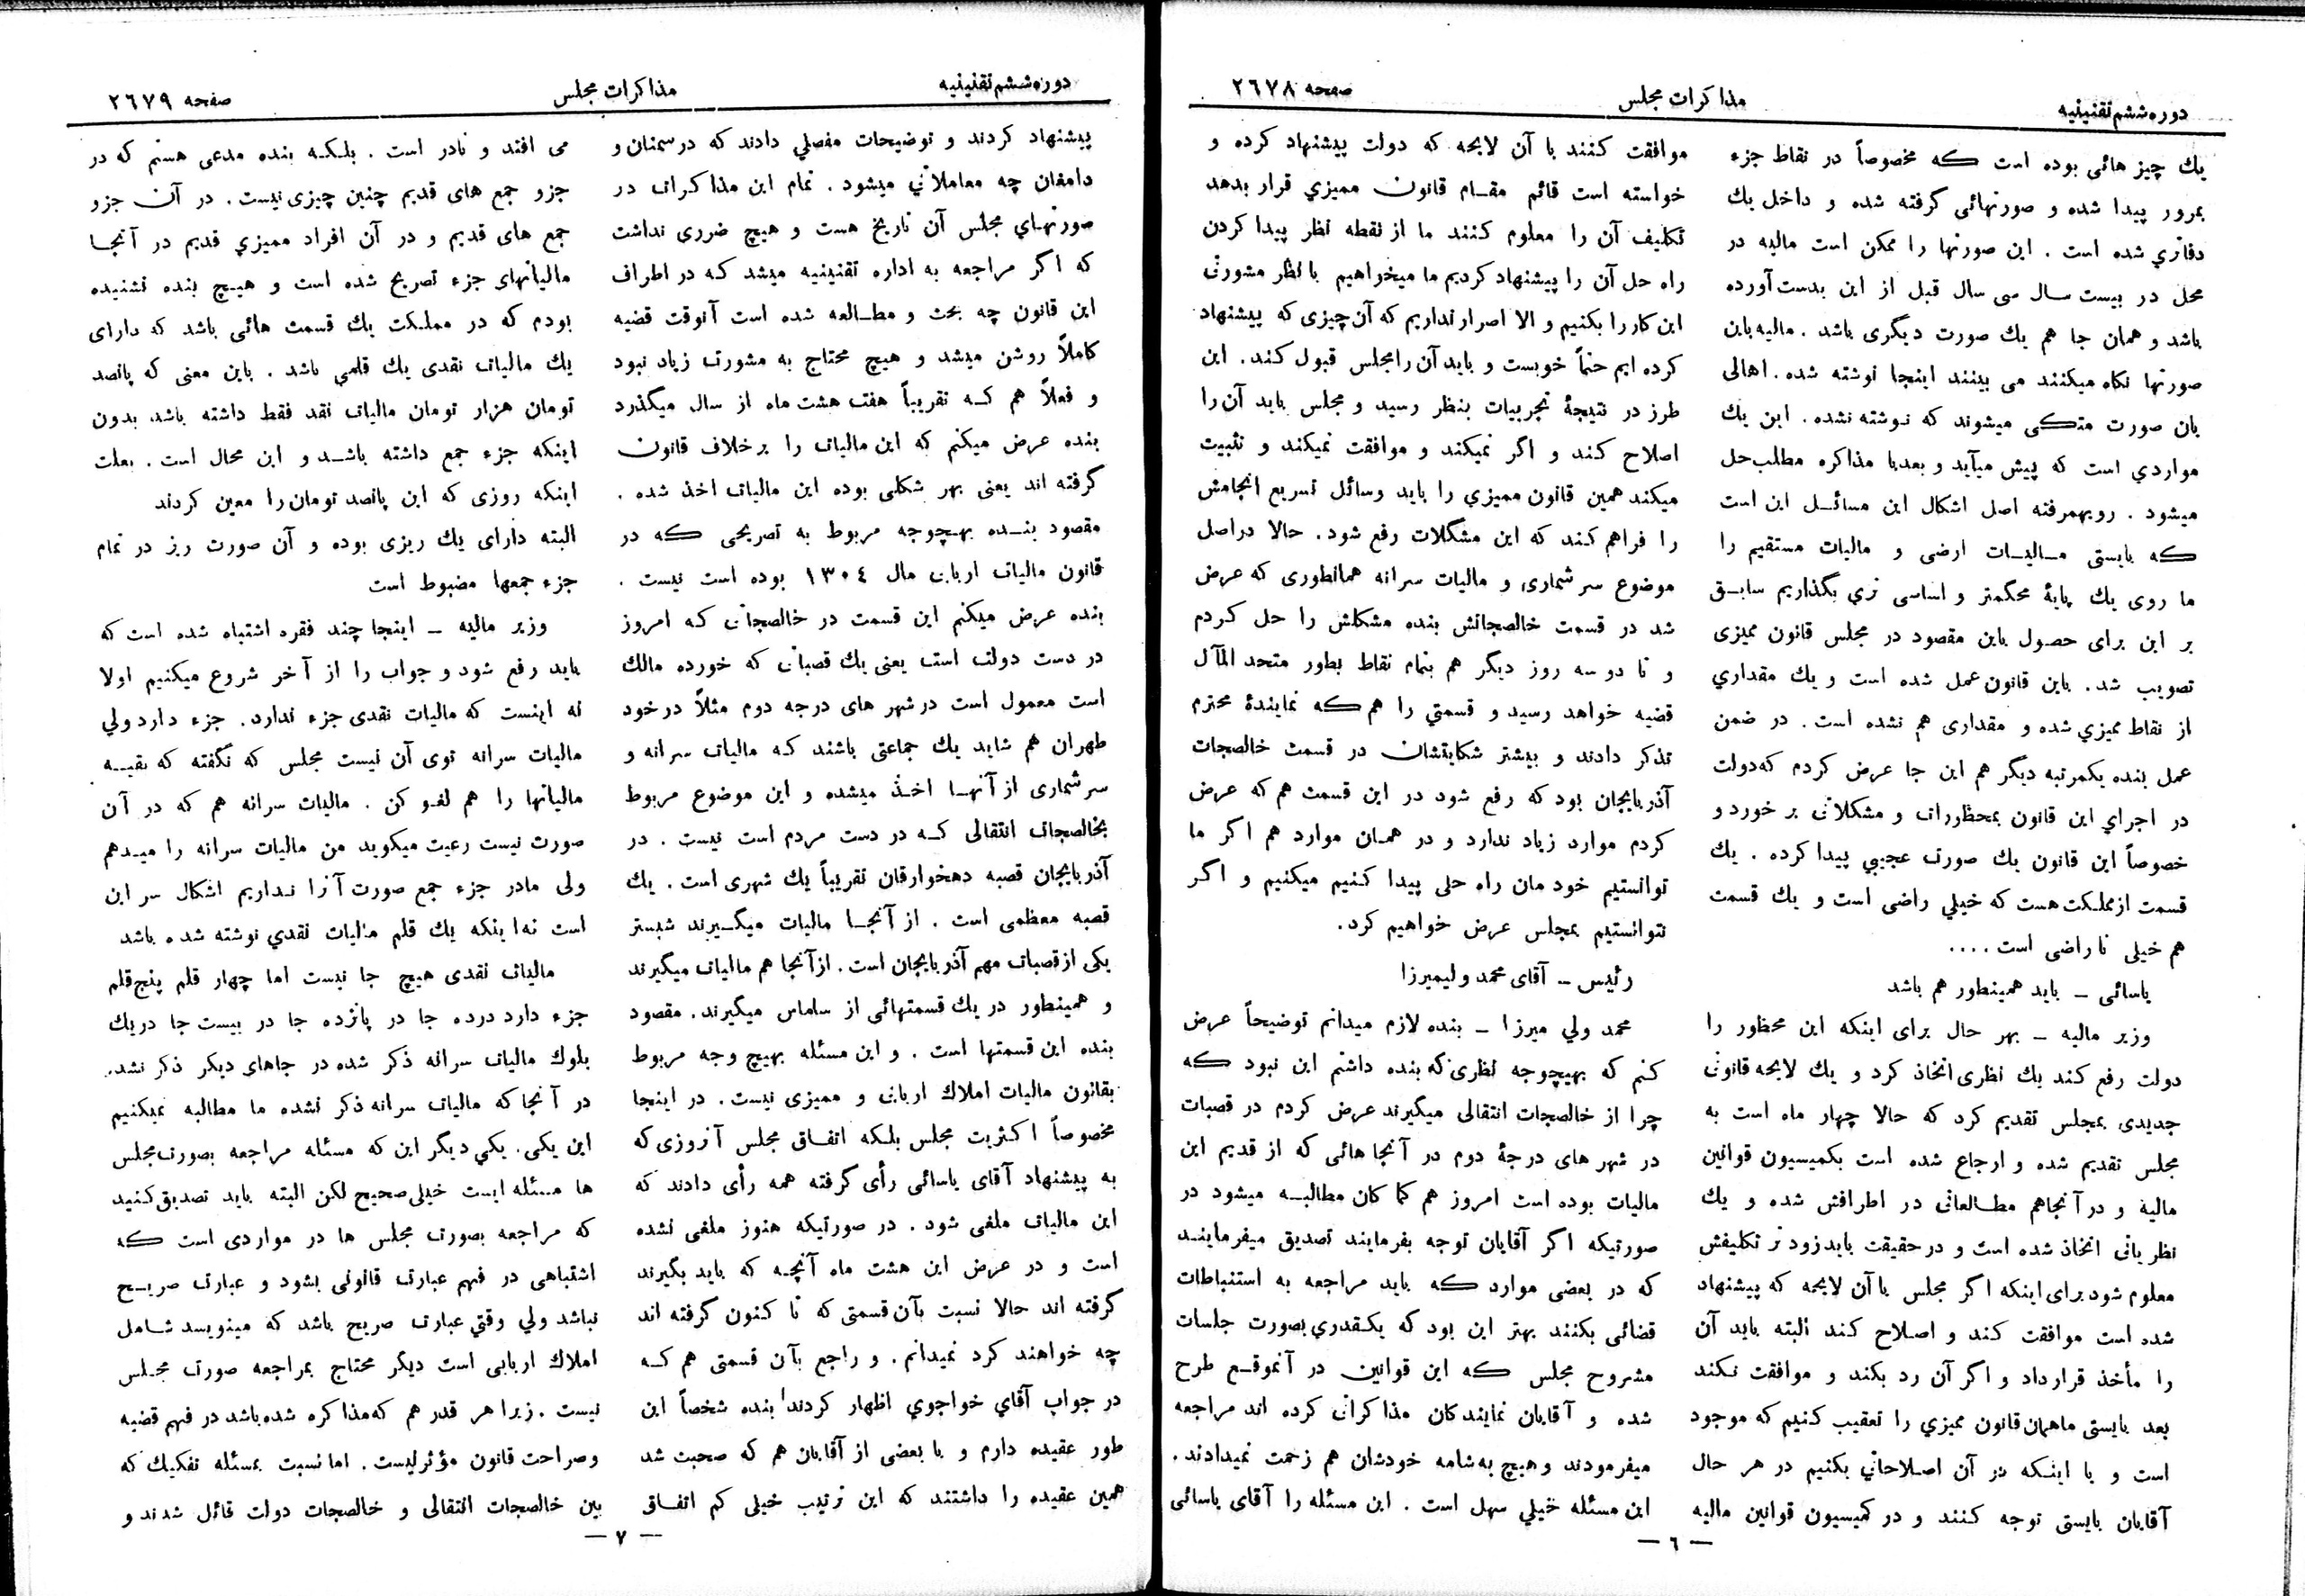 دوره ششم تقنینیه
مذاکرات مجلس
صفحه ۲۶۷۸
یك چیز هائی بوده است که مخصوصاً در نقاط جزء
بمرور پیدا شده و صورتهائی گرفته شده و داخل یك
دفاتری شده است . این صورتها را ممکن است مالیه در
محل در بیست سال سی سال قبل از این بدست آورده
باشد و همان جا هم یك صورت دیگری باشد . مالیه باین
صورتها نگاه میکنند می بینند اینجا نوشته شده . اهالی
بان صورت متکی میشوند که نوشته نشده . این یك
مواردي است که پیش میآید و بعد با مذاکره مطلب حل
میشود . رویهمرفته اصل اشکال این مسائل این است
که بایستی مالیات ارضی و مالیات مستقیم را
ما روی یك پایهٔ محکمتر و اساسی تري بگذاریم سابق
بر این برای حصول باین مقصود در مجلس قانون ممیزی
تصویب شد . باین قانون عمل شده است و یك مقداري
از نقاط ممیزي شده و مقداری هم نشده است . در ضمن
عمل بنده یکمرتبه دیگر هم این جا عرض کردم که دولت
در اجراي این قانون بمحظورات و مشکلاتی بر خورد و
خصوصاً این قانون یك صورت عجیبي پیدا کرده . یك
قسمت از مملکت هست که خیلي راضی است و یك قسمت
هم خیلی نا راضی است . . . .
یاسائی – باید همینطور هم باشد
وزیر مالیه – بهر حال برای اینکه این محظور را
دولت رفع کند یك نظری اتخاذ کرد و یك لایحه قانونی
جدیدی بمجلس تقدیم کرد که حالا چهار ماه است به
مجلس تقدیم شده و ارجاع شده است بکمیسیون قوانین
مالیه و در آنجاهم مطالعاتی در اطرافش شده و یك
نظریاتی اتخاذ شده است و در حقیقت باید زود تر تکلیفش
معلوم شود برای اینکه اگر مجلس با آن لایحه که پیشنهاد
شده است موافقت کند و اصلاح کند البته باید آن
را مأخذ قرارداد و اگر آن رد بکند و موافقت نکند
بعد بایستی ماهمان قانون ممیزي را تعقیب کنیم که موجود
است و با اینکه در آن اصلاحاتي بکنیم در هر حال
آقایان بایستی توجه کنند و در کمیسیون قوانین مالیه
موافقت کنند با آن لایحه که دولت پیشنهاد کرده و
خواسته است قائم مقام قانون ممیزي قرار بدهد
تکلیف آن را معلوم کنند ما از نقطه نظر پیدا کردن
راه حل آن را پیشنهاد کردیم ما میخواهیم با نظر مشورتی
این کار را بکنیم و الا اصرار نداریم که آن چیزی که پیشنهاد
کرده ایم حتماً خوبست و باید آن را مجلس قبول کند . این
طرز در نتیجهٔ تجربیات بنظر رسید و مجلس باید آن را
اصلاح کند و اگر نمیکند و موافقت نمیکند و تثبیت
میکند همین قانون ممیزي را باید وسائل تسریع انجامش
را فراهم کند که این مشکلات رفع شود . حالا در اصل
موضوع سر شماری و مالیات سرانه همانطوری که عرض
شد در قسمت خالصجاتش بنده مشکلش را حل کردم
و تا دو سه روز دیگر هم بتمام نقاط بطور متحد المآل
قضیه خواهد رسید و قسمتي را هم که نمایندهٔ محترم
تذکر دادند و بیشتر شکایتشان در قسمت خالصجات
آذربایجان بود که رفع شود در این قسمت هم که عرض
کردم موارد زیاد ندارد و در همان موارد هم اگر ما
توانستیم خود مان راه حلی پیدا کنیم میکنیم و اگر
نتوانستیم بمجلس عرض خواهیم کرد .
رئیس – آقای محمد ولیمیرزا
محمد ولي میرزا – بنده لازم میدانم توضیحاً عرض
کنم که بهیچوجه نظری که بنده داشتم این نبود که
چرا از خالصجات انتقالی میگیرند عرض کردم در قصبات
در شهر های درجهٔ دوم در آنجا هائی که از قدیم این
مالیات بوده است امروز هم کما کان مطالبه میشود در
صورتیکه اگر آقایان توجه بفرمایند تصدیق میفرمایند
که در بعضی موارد که باید مراجعه به استنباطات
قضائی بکنند بهتر این بود که یکقدري بصورت جلسات
مشروح مجلس که این قوانین در آنموقع طرح
شده و آقایان نمایندکان مذاکراتی کرده اند مراجعه
میفرمودند و هیچ به شامه خودشان هم زحمت نمیدادند .
این مسئله خیلي سهل است . این مسئله را آقای یاسائی
— ٦ —
دوره ششم تقنینیه
مذاکرات مجلس
صفحه ۲۶۷۹
پیشنهاد کردند و توضیحات مفصلي دادند که در سمنان و
دامغان چه معاملاتي میشود . تمام این مذاکرات در
صورتهاي مجلس آن تاریخ هست و هیچ ضرری نداشت
که اگر مراجعه به اداره تقنینیه میشد که در اطراف
این قانون چه بحث و مطالعه شده است آنوقت قضیه
کاملاً روشن میشد و هیچ محتاج به مشورت زیاد نبود
و فعلاً هم که تقریباً هفت هشت ماه از سال میگذرد
بنده عرض میکنم که این مالیات را بر خلاف قانون
گرفته اند یعنی بهر شکلی بوده این مالیات اخذ شده .
مقصود بنده بهیچوجه مربوط به تصریحی که در
قانون مالیات اربابی مال ۱۳۰٤ بوده است نیست .
بنده عرض میکنم این قسمت در خالصجاتی که امروز
در دست دولت است یعنی یك قصباتی که خورده مالك
است معمول است در شهر های درجه دوم مثلاً در خود
طهران هم شاید یك جماعتی باشند که مالیات سرانه و
سرشماری از آنها اخذ میشده و این موضوع مربوط
بخالصجات انتقالی که در دست مردم است نیست . در
آذربایجان قصبه دهخوارقان تقریباً یك شهری است . یك
قصبه معظمی است . از آنجا مالیات میگیرند شبستر
یکی از قصبات مهم آذربایجان است . از آنجا هم مالیات میگیرند
و همینطور در یك قسمتهائی از سلماس میگیرند . مقصود
بنده این قسمتها است . و این مسئله بهیچ وجه مربوط
بقانون مالیات املاك اربابی و ممیزی نیست . در اینجا
مخصوصاً اکثریت مجلس بلکه اتفاق مجلس آنروزی که
به پیشنهاد آقای یاسائی رأی گرفته همه رأی دادند که
این مالیات ملغی شود . در صورتیکه هنوز ملغی نشده
است و در عرض این هشت ماه آنچه که باید بگیرند
گرفته اند حالا نسبت بآن قسمتی که تا کنون گرفته اند
چه خواهند کرد نمیدانم . و راجع بآن قسمتی هم که
در جواب آقاي خواجوي اظهار کردند بنده شخصاً این
طور عقیده دارم و با بعضی از آقایان هم که صحبت شد
همین عقیده را داشتند که این ترتیب خیلی کم اتفاق
می افتد و نادر است . بلکه بنده مدعی هستم که در
جزو جمع های قدیم چنین چیزی نیست . در آن جزو
جمع های قدیم و در آن افراد ممیزي قدیم در آنجا
مالیاتهای جزء تصریح شده است و هیچ بنده نشنیده
بودم که در مملکت یك قسمت هائی باشد که دارای
یك مالیات نقدی یك قلمي باشد . باین معنی که پانصد
تومان هزار تومان مالیات نقد فقط داشته باشد بدون
اینکه جزء جمع داشته باشد و این محال است . بعلت
اینکه روزی که این پانصد تومان را معین کردند
البته دارای یك ریزی بوده و آن صورت ریز در تمام
جزء جمعها مضبوط است
وزیر مالیه – اینجا چند فقره اشتباه شده است که
باید رفع شود و جواب را از آخر شروع میکنیم اولا
نه اینست که مالیات نقدی جزء ندارد . جزء دارد ولي
مالیات سرانه توی آن نیست مجلس که نگفته که بقیه
مالیاتها را هم لغو کن . مالیات سرانه هم که در آن
صورت نیست رعیت میگوید من مالیات سرانه را میدهم
ولی مادر جزء جمع صورت آنرا نداریم اشکال سر این
است نه اینکه یك قلم مالیات نقدي نوشته شده باشد
مالیات نقدی هیچ جا نیست اما چهار قلم پنج قلم
جزء دارد در ده جا در پانزده جا در بیست جا در یك
بلوك مالیات سرانه ذکر شده در جاهای دیکر ذکر نشده
در آنجا که مالیات سرانه ذکر نشده ما مطالبه نمیکنیم
این یکی . یکي دیگر این که مسئله مراجعه بصورت مجلس
ها مسئله ایست خیلی صحیح لکن البته باید تصدیق کنید
که مراجعه بصورت مجلس ها در مواردی است که
اشتباهی در فهم عبارت قانونی بشود و عبارت صریح
نباشد ولي وقتي عبارت صریح باشد که مینویسد شامل
املاك اربابی است دیگر محتاج بمراجعه صورت مجلس
نیست . زیرا هر قدر هم که مذاکره شده باشد در فهم قضیه
وصراحت قانون مؤثر نیست . اما نسبت بمسئله تفکیك که
بین خالصجات انتقالی و خالصجات دولت قائل شدند و
— ۷ —